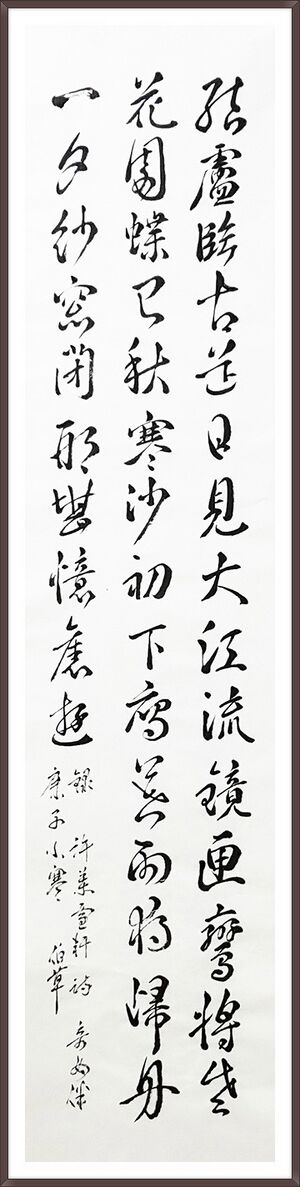 結廬臨古道日見大江流鏡匣鸞將老
花園蝶已秋寒沙初下雁暮雨獨歸舟
一夕紗窓閉那堪憶舊遊
錄許蘭雪軒詩 寄女伴
庚子小寒 伯草